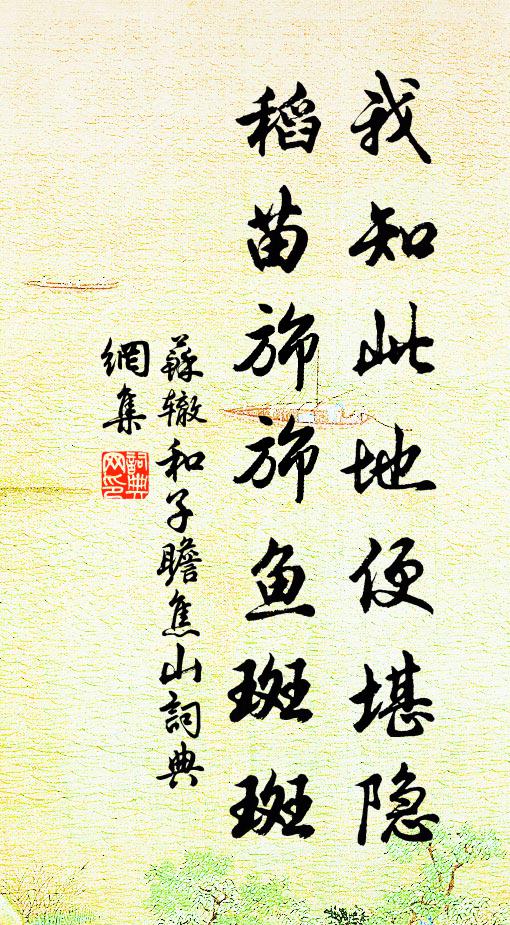 我知此地便堪隐
稻苗旆旆鱼斑斑
蘇辙和子瞻焦山詞典
網集
詞典
网印